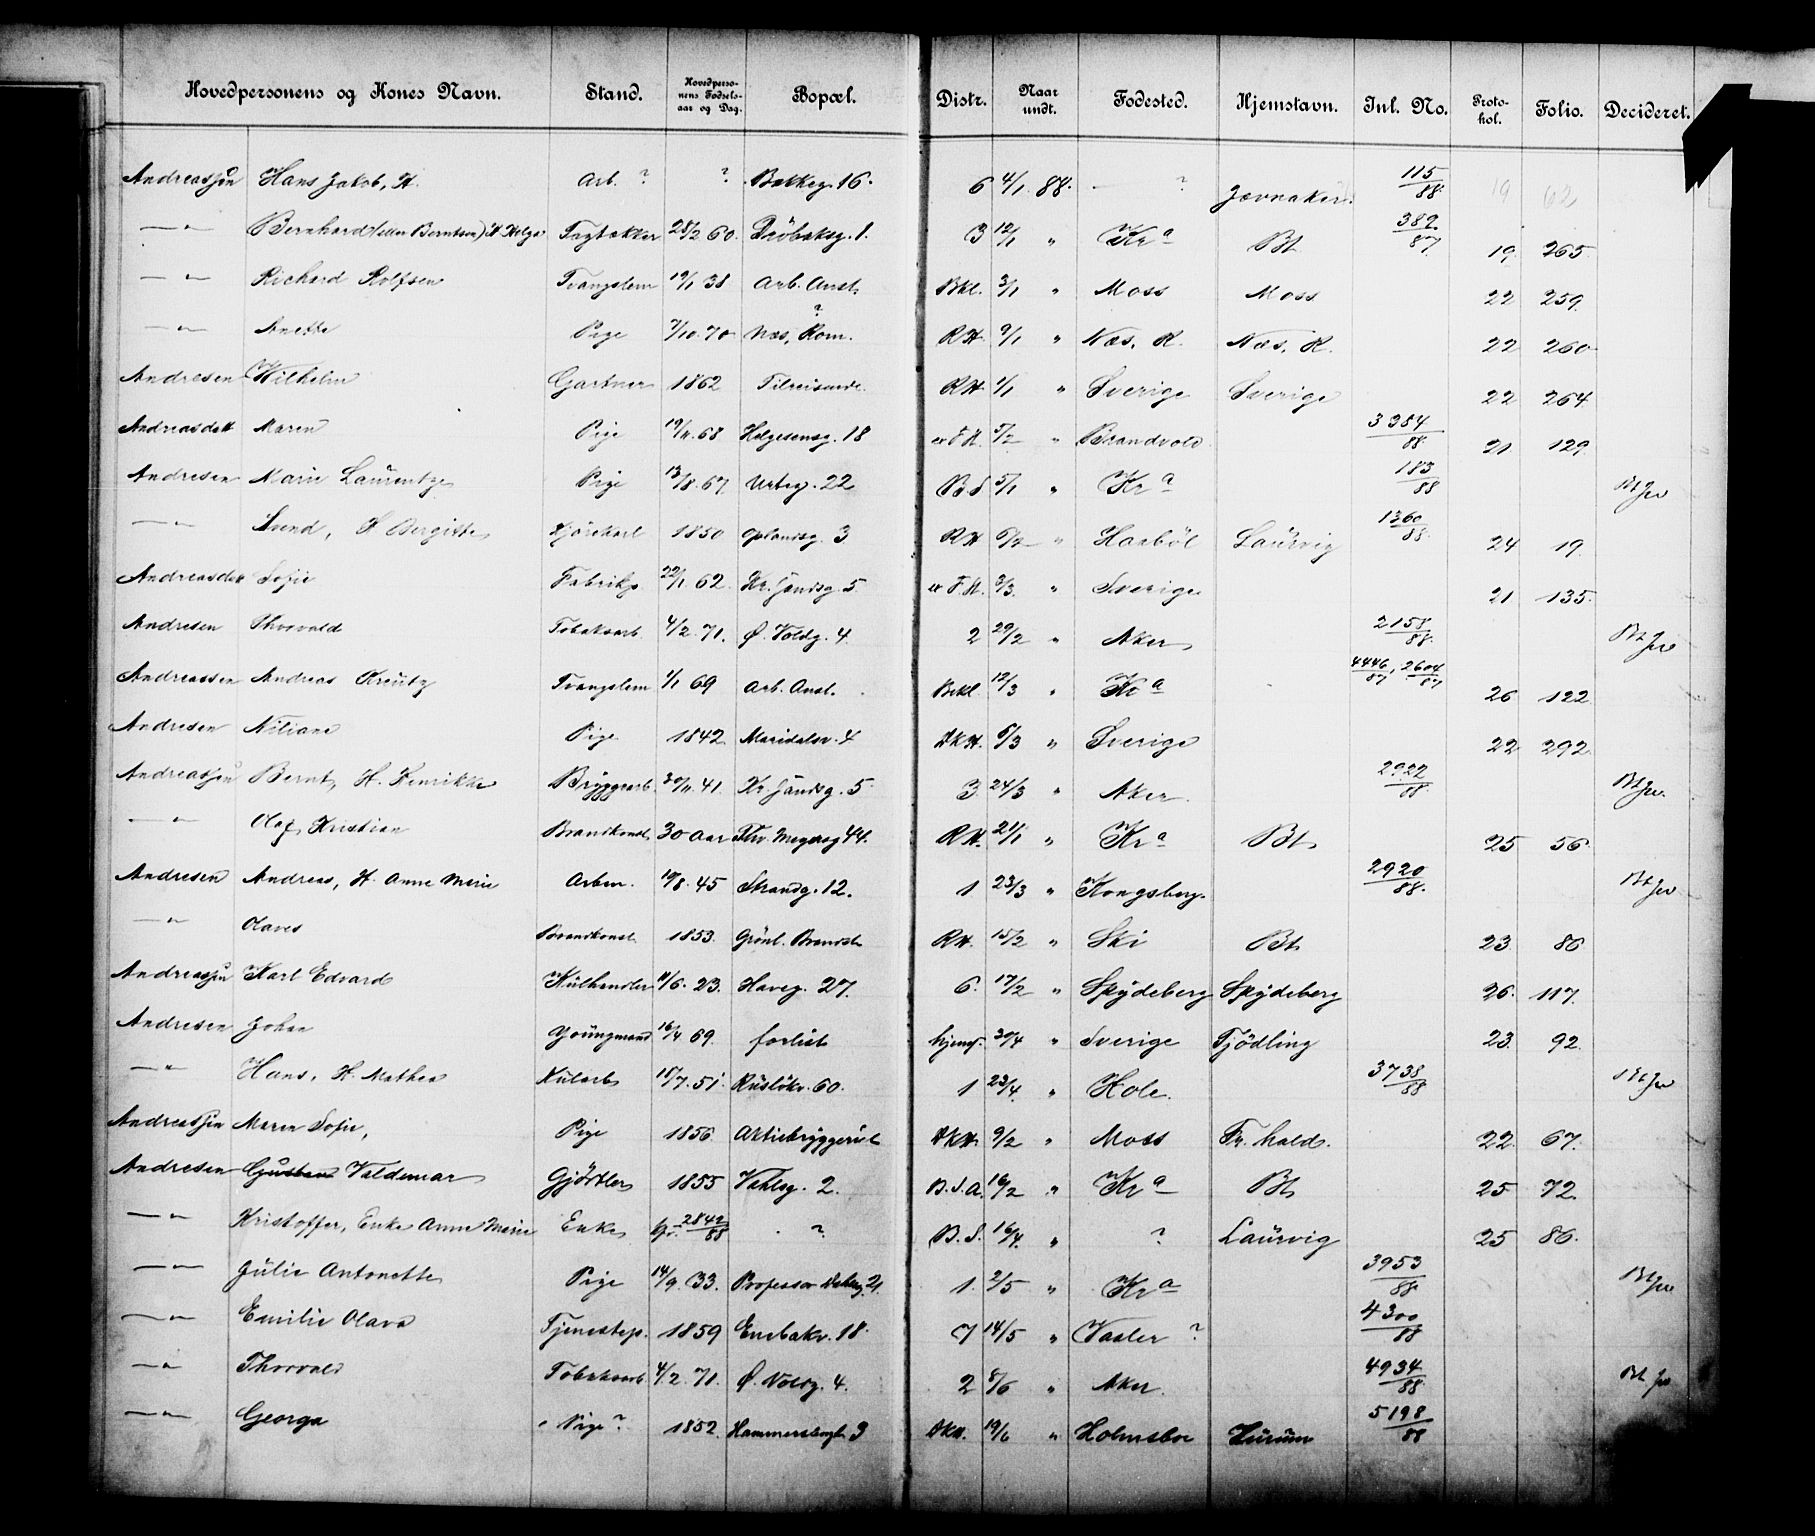 Hovedpersonens og Kones Navn. Stand. Hovedpersonens Fødselsaar og Dag. Bopæl. Distr. Naar undt. Fødested. Hjemstavn. Inl. No. Protokol. Folio. Decideret.
Andreassen Hans Jakob, H. Arb. ? ? Bakkeg. 16. 6 4/1 88. ? Jævnaker. 115/88. 19 62
—"— Bernhard (eller Berntsen) H. Helga Tagtækker 28/2 60. Drøbaksg. 1. 3 12/1 " Kr a Bt. 382/87 19. 265.
—"— Richard Rolfsen Tvangslem 19/1 38 Arb. Anst. Bkl. 3/1 " Moss Moss 22 259.
—"— Anette Pige 7/10. 70 Næs, Rom. ? RH. 9/1 " Næs, R. Næs, R. 22 260
Andresen Wilhelm Gartner 1862 Tilreisende. RH. 1/1 " Sverige Sverige 22 264
Andreasdatt Maren Pige 19/11. 68 Helgesensg. 18 5/2 " Brandvold 3384/88. 21 129.
Andresen Marie Laurentze Pige 13/8. 67 Urteg. 22 B.S 5/1 " Kr a 183/88 Bt Jw
—"— Svend, H Bergitte Kjørekarl 1850 Oplandsg. 3 RH 6/2 " Haabøl Laurvig 1360/88. 24 19.
Andreasdatt Sofie Fabrikp 22/1 62. Kr. Gandsg. 5. 3/3. " Sverige 21 135.
Andresen Thorvald Tobaksarb. 4/2. 71. Ø. Voldg. 4. 2 29/2 " Aker 2158/88. Bt Jw
Andreassen Andreas Kreutz Tvangslem 1/1 69 Arb. Anst. Bekl. 12/3 " Kr a 4446/87, 2604/87 26 122
Andresen Niliane Pige. 1842. Maridalsv. 4 AKH. 6/3 " Sverige 22 292.
Andreassen Bernt, H. Henrikke Bryggearb. 30/11. 41. Kr. Gandsg. 5. 3. 24/3 " Aker. 2922/88. Bt Jw.
—"— Olaf Kristian Brandkonst. 30 Aar Thv. Meyersg 44. RH. 21/1 " Kr a Bt. 25 56.
Andresen Andreas, H. Anne Marie Arbm. 19/8. 45 Strandg. 12. 1. 23/3 " Kongsberg. 2920/88. Bt Jw
—"— Olaves Brandkonst. 1853. Grønl. Brandst. RH. 15/2 " Ski Bt. 23. 86
Andreassen Karl Edvard Kulhandler 11/6. 23. Haveg. 27. 6. 17/2 " Spydeberg Spydeberg 26. 117.
Andresen Johan Youngmand 16/4 69. forlist hjemf. 30/4 " Sverige Tjödling 23. 92.
—"— Hans, H. Mathea Kularb 15/7. 51. Ruseløkv. 60. 1 23/4. " Hole. 3738/88 Bt Jw
Andreassen Maren Sofie, Pige 1856. Aktiebryggeriet AKH. 9/2 " Moss Fr. hald. 22. 67.
Andresen Gustav Valdemar Gjørtler 1855 Vahlsg. 2. B.S.A. 16/2 " Kr a Bt. 25 72.
—"— Kristoffer, Enke Anne Marie Enke 2842/88 ? B.S. 16/4. " ? Laurvig 25 86.
—"— Julie Antonette Pige 14/9. 33. Professor Dahlsg. 21. 1. 2/5 " Kr a 3953/88. Bt Jw
—"— Emilie Olava Tjenestep. 1859 Enebakv. 18. 7 14/5 " Vaaler ? 4300/88
—"— Thorvald Tobaksarb. 4/2. 71. Ø. Voldg. 4. 2 8/6 " Aker. 4934/88. Bt Jw
—"— Georga Pige ? 1852. Hammersborgt. 9 AKH. 19/6 " Holmsbo Hurum 5198/88